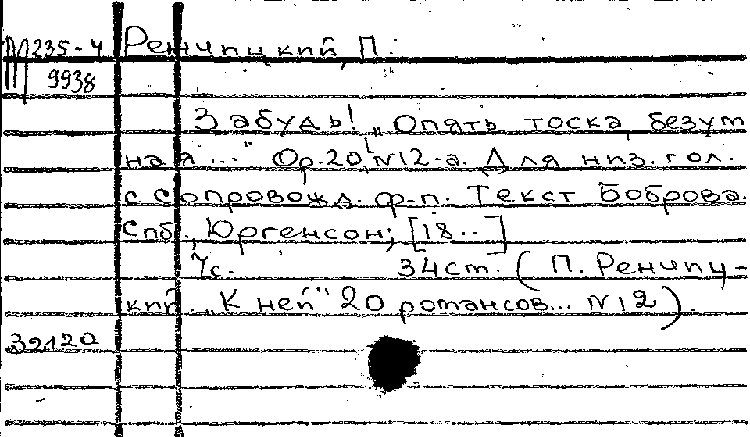 М 235-4 Ренчицкий, П.
9938
Забудь! „Опять тоска безут
ная..." Ор.20, N12-а. Для низ. гол.
с сопровожд. ф-п. Текст Боброва.
Спб., Юргенсон, [18..]
7с. 34см. (П. Ренчиц-
кий. „К ней" 20 романсов... N12).
39120